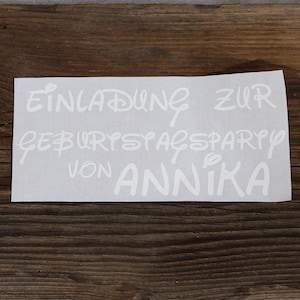 EINLADUNG ZUR
GEBURTSTAGSPARTY
VON ANNIKA